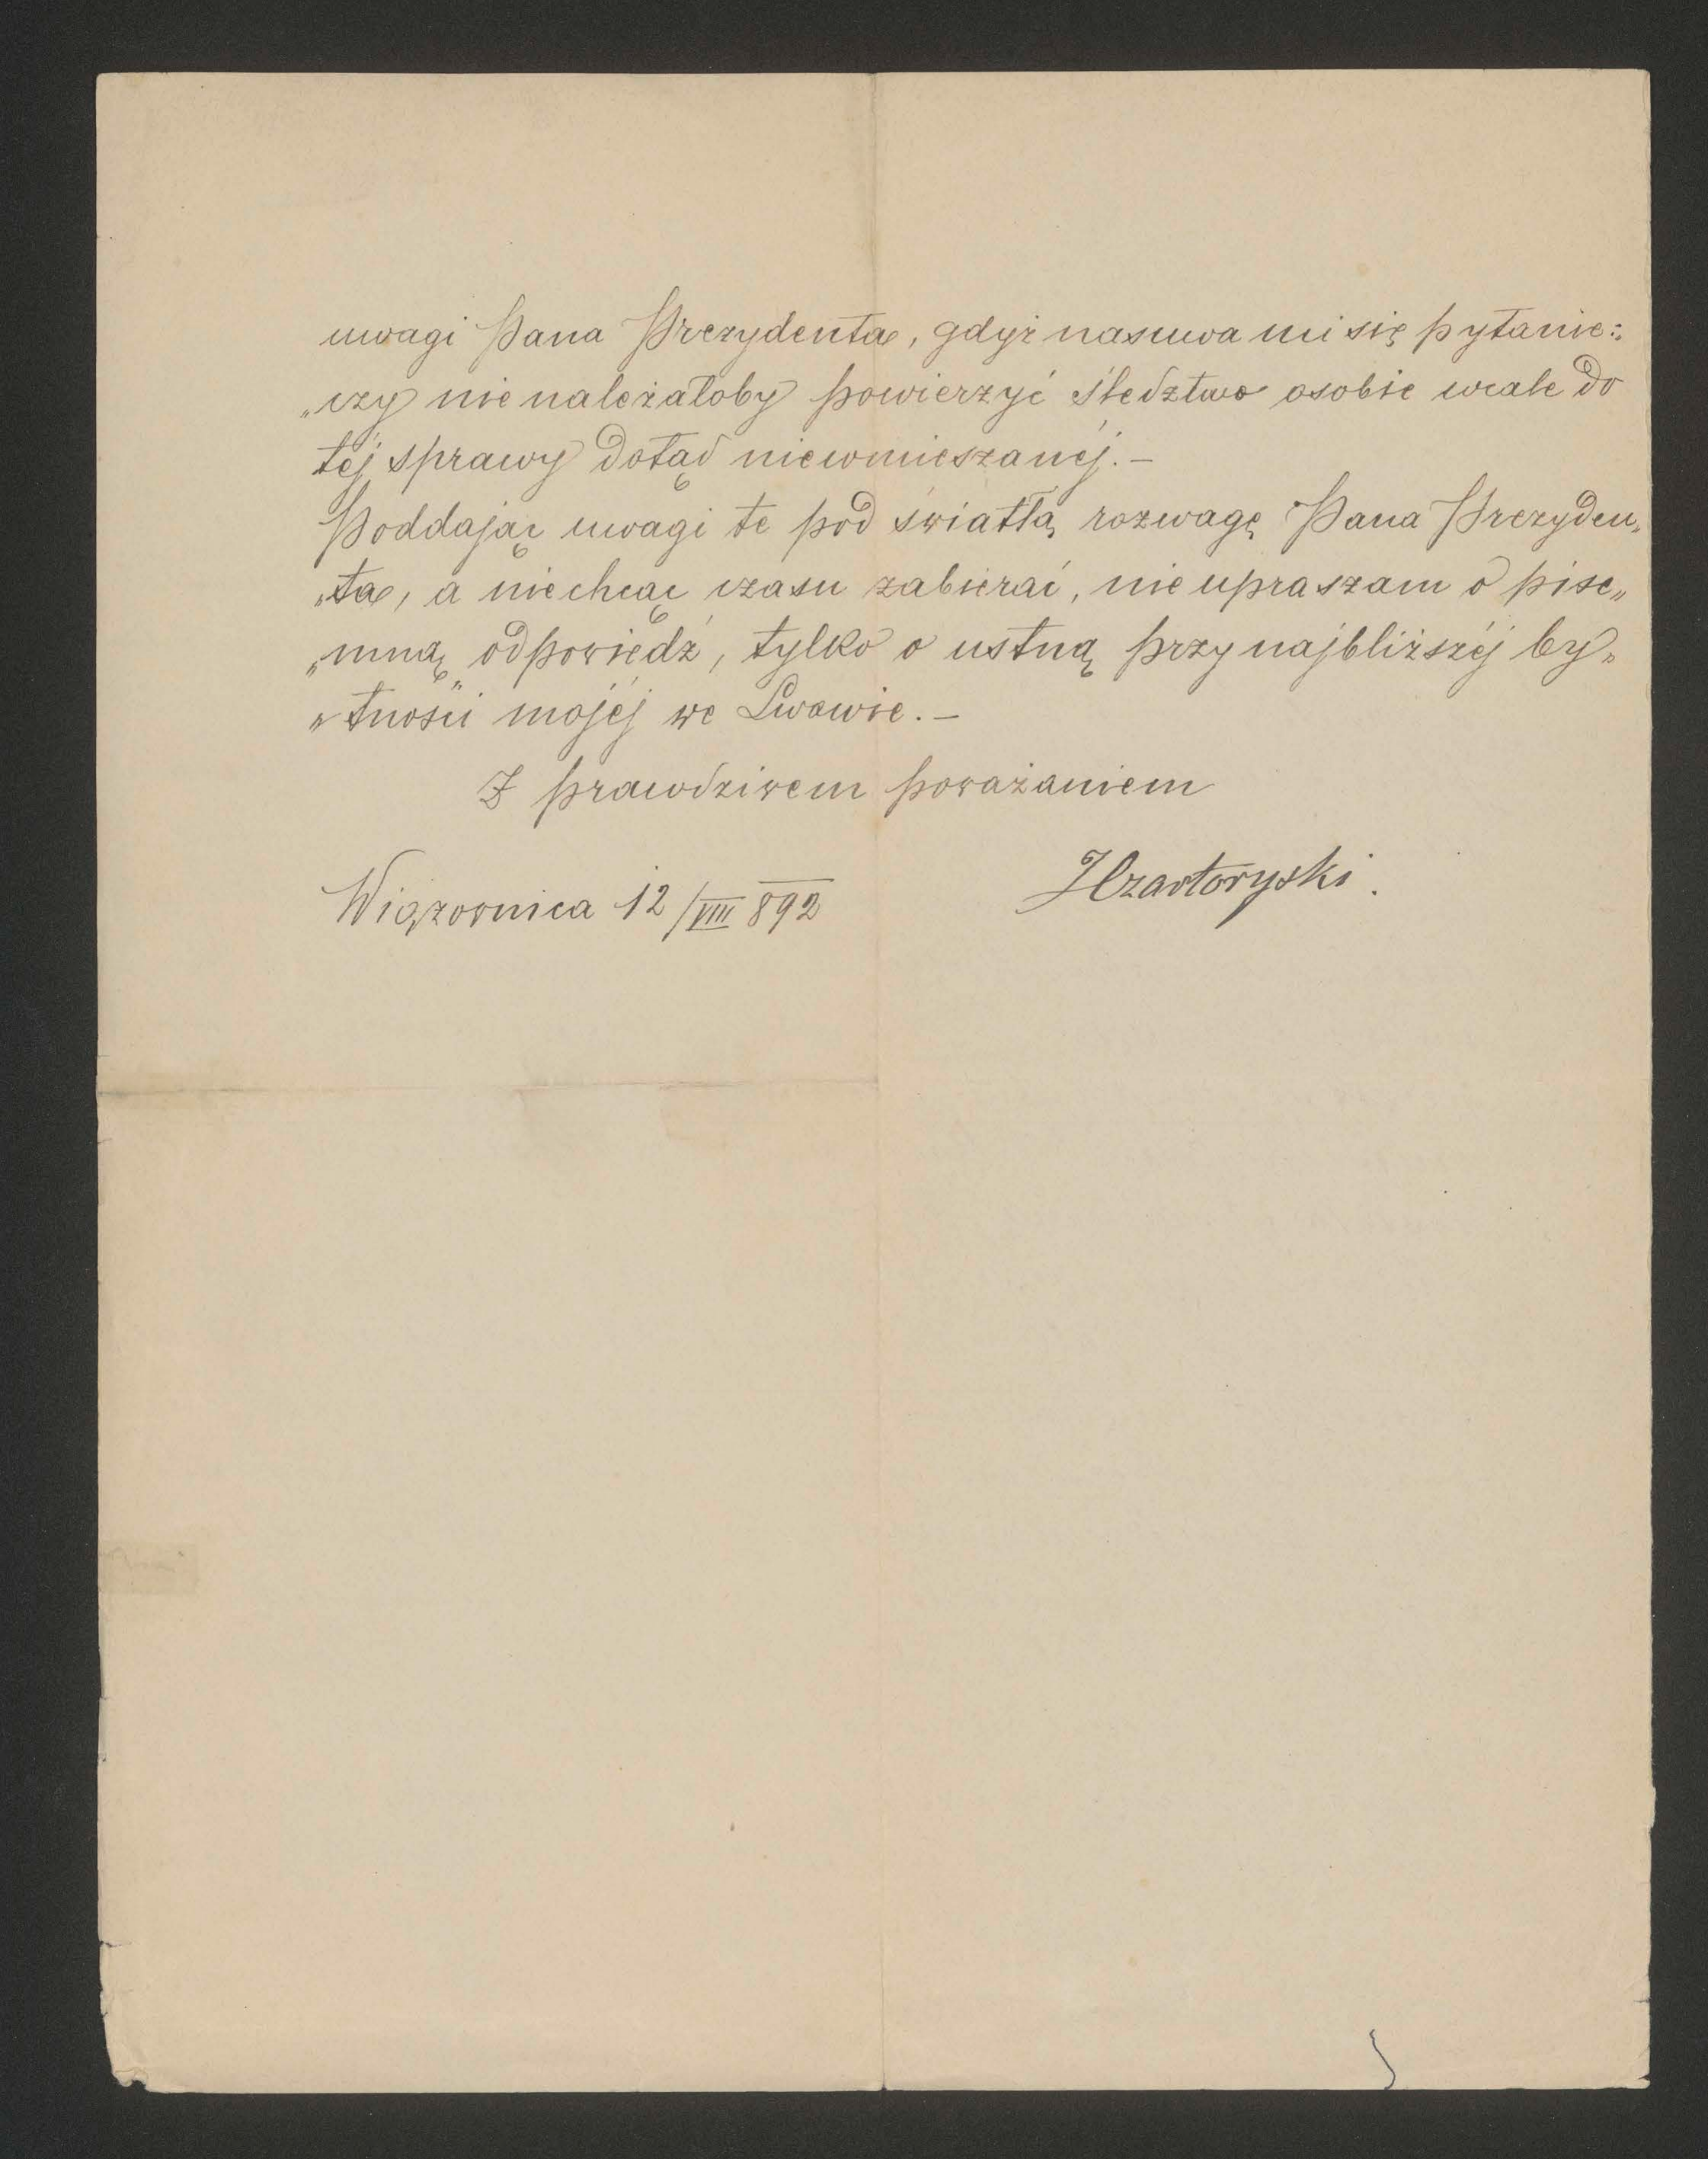 uwagi Pana Prezydenta, gdyż nasuwa mi się pytanie:
„czy nie należałoby powierzyć śledztwo osobie wcale do
téj sprawy dotąd niewmieszanéj.—
Poddając uwagi te pod światłą rozwagę Pana Prezyden„
„ta, a niechcąc czasu zabierać, nie upraszam o pise„
„mną„ odpowiedź, tylko o ustną przy najbliższéj by„
„tności mojéj we Lwowie.—
Z prawdziwem poważaniem
Wiązownica 12/VIII 892
JCzartoryski.